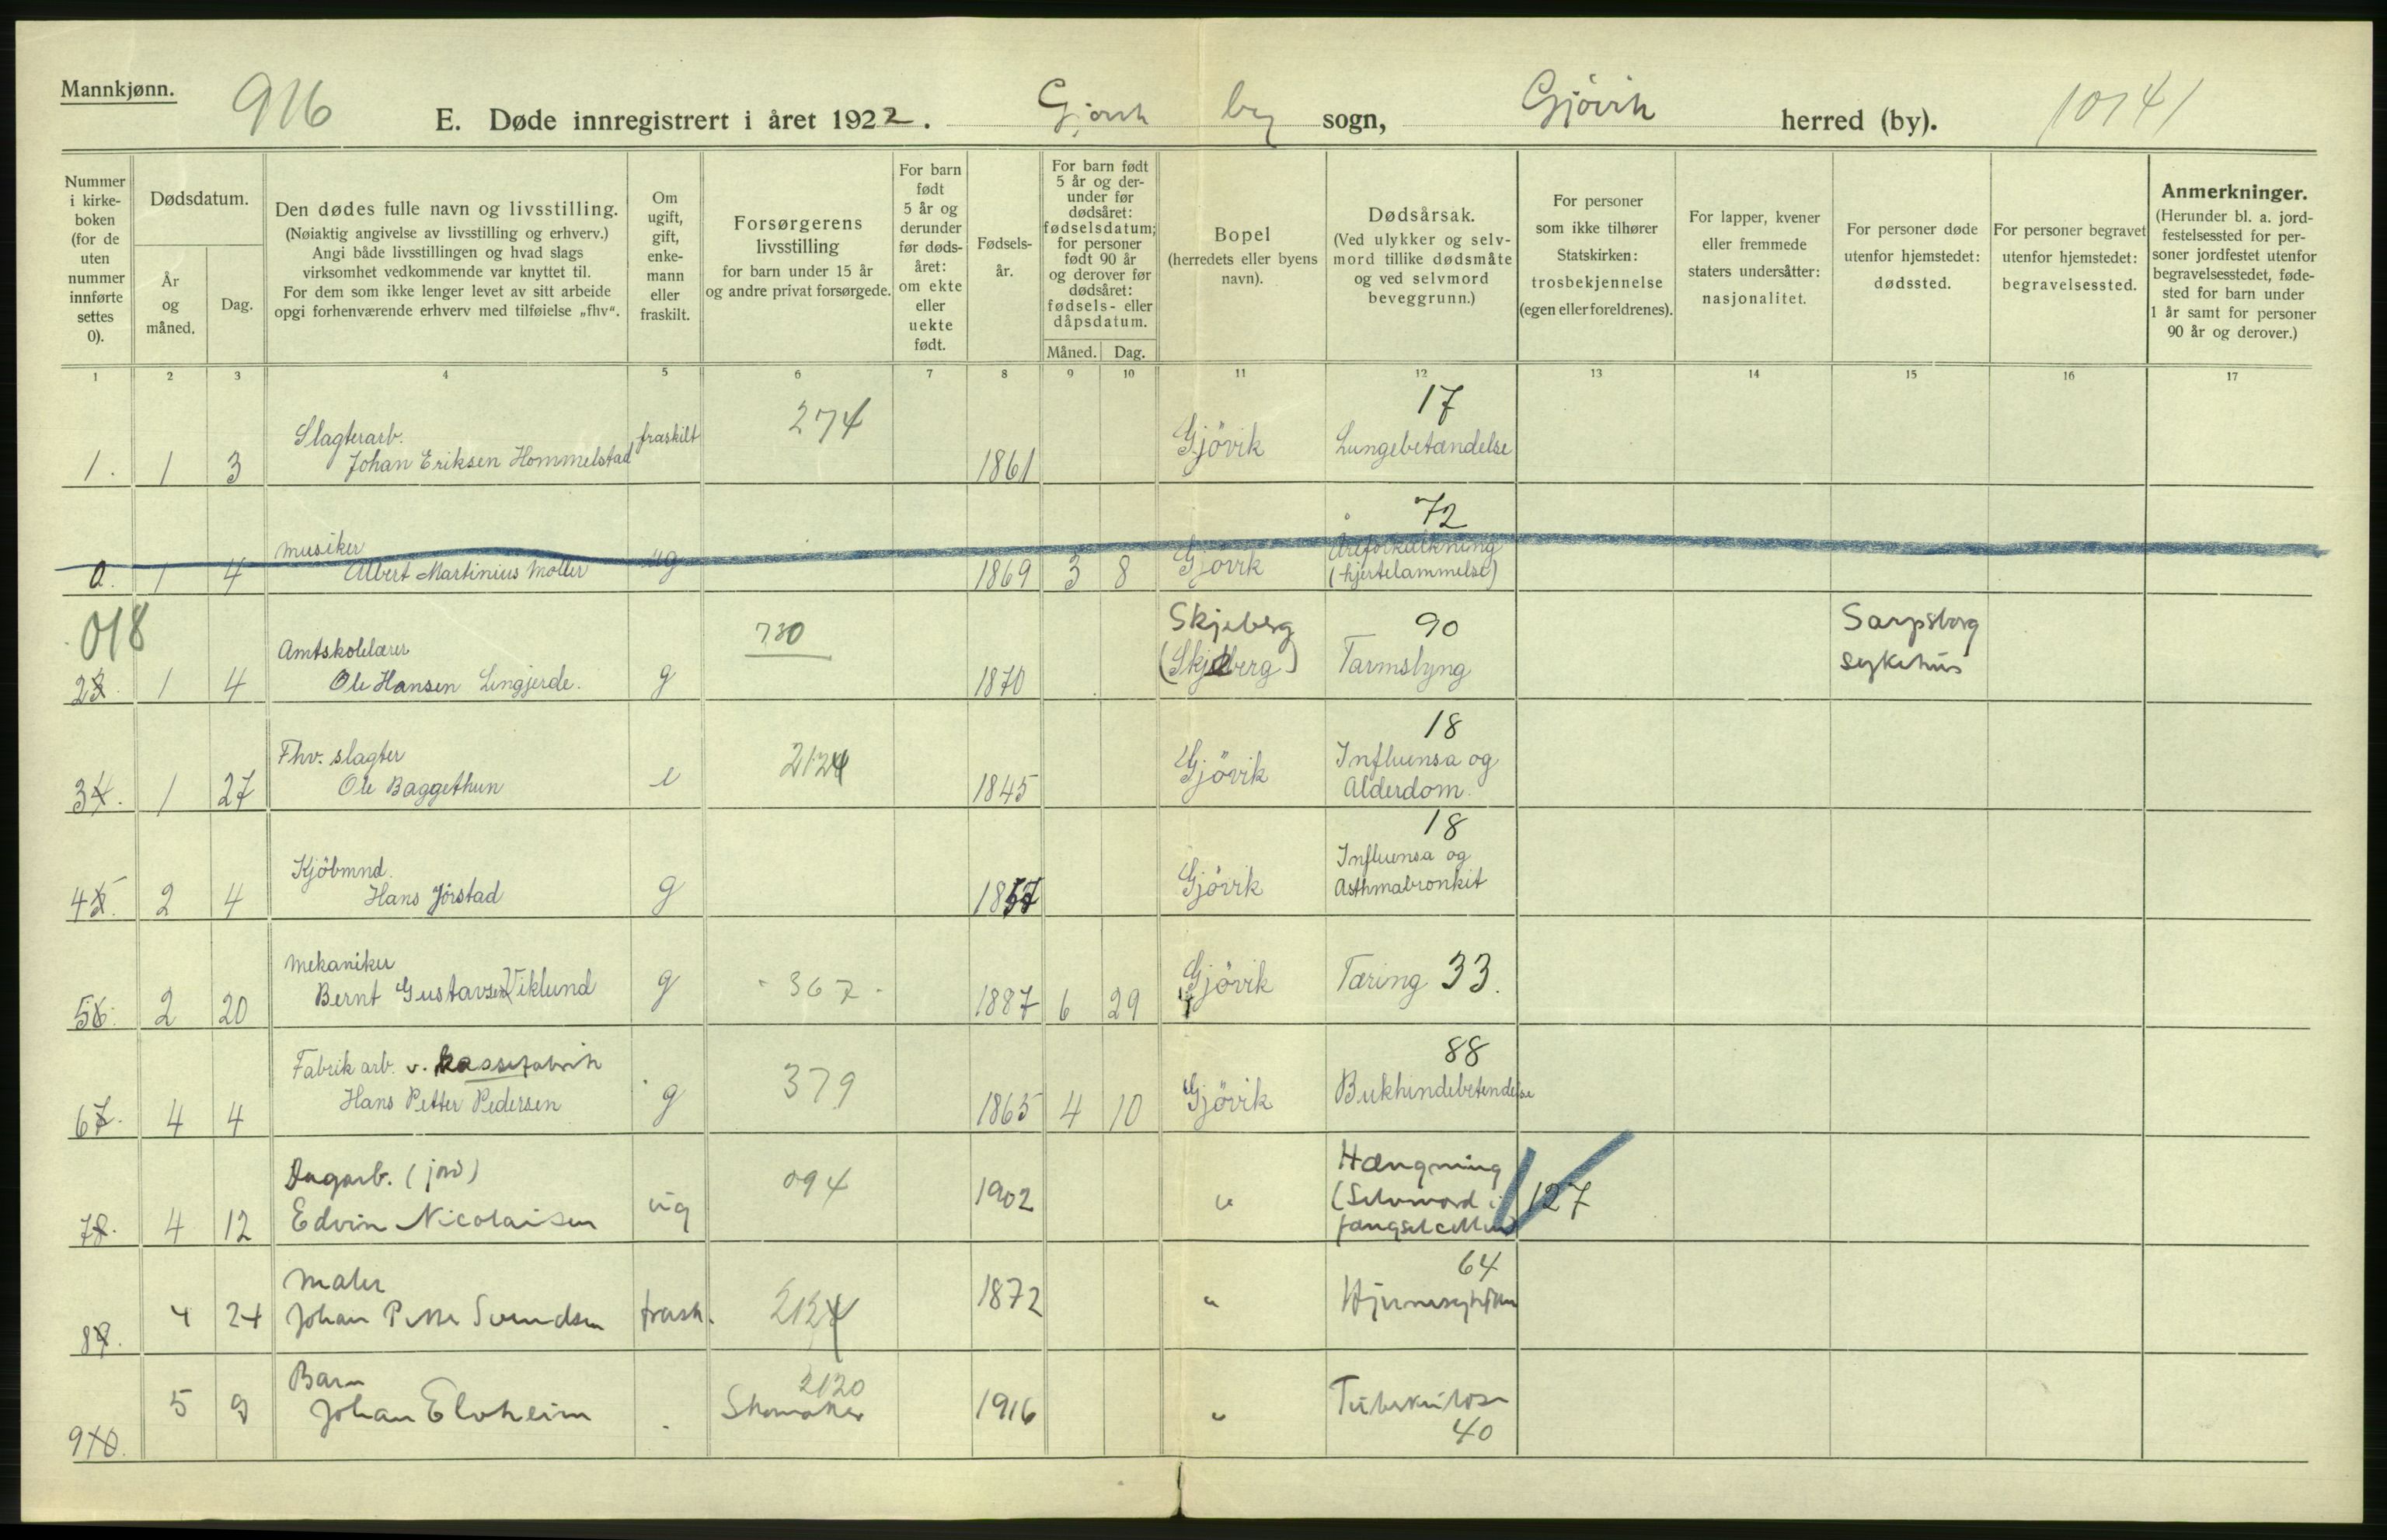 Mannkjønn.
916
E. Døde innregistrert i året 1922. Gjøvik by sogn, Gjövik herred (by).
10141
Nummer i kirkeboken (for de uten nummer innførte settes 0).
Dødsdatum.
År og måned.
Dag.
Den dødes fulle navn og livsstilling.
(Nøiaktig angivelse av livsstilling og erhverv.)
Angi både livsstillingen og hvad slags
virksomhet vedkommende var knyttet til.
For dem som ikke lenger levet av sitt arbeide
opgi forhenværende erhverv med tilføielse „fhv“.
Om ugift, gift, enkemann eller fraskilt.
Forsørgerens
livsstilling
for barn under 15 år
og andre privat forsørgede.
For barn født 5 år og derunder før dødsåret: om ekte eller uekte født.
Fødselsår.
For barn født 5 år og derunder før dødsåret: fødselsdatum; for personer født 90 år og derover før dødsåret: fødsels- eller dåpsdatum.
Måned. Dag.
Bopel
(herredets eller byens
navn).
Dødsårsak.
(Ved ulykker og selvmord tillike dødsmåte
og ved selvmord
beveggrunn.)
For personer
som ikke tilhører
Statskirken:
trosbekjennelse
(egen eller foreldrenes).
For lapper, kvener
eller fremmede
staters undersåtter:
nasjonalitet.
For personer døde
utenfor hjemstedet:
dødssted.
For personer begravet
utenfor hjemstedet:
begravelsessted.
Anmerkninger.
(Herunder bl. a. jordfestelsessted for personer jordfestet utenfor begravelsesstedet, fødested for barn under 1 år samt for personer 90 år og derover.)
1 2 3 4 5 6 7 8 9 10 11 12 13 14 15 16 17
17
Slagterarb. fraskilt 274 Gjövik Lungebetændelse
1. 1 3 Johan Eriksen Hommelstad 1861
72
Musiker ug Gjövik Åreforkalkning
0. 1 4 Albert Martinius Møller 1869 3 8 (hjertelammelse)
018 Skjeberg 90 Sarpsborg
Amtskolelærer 730 (Skjeberg) Tarmslyng sykehus
23. 1 4 Ole Hansen Lengjerde. g 1870
18
Fhv. slagter 2124 Gjövik Influensa og
34. 1 27 Ole Baggethun e 1845 Alderdom.
18
Kjöbmnd. Gjövik Influensa og
45. 2 4 Hans Jörstad g 1857 Asthmabronkit
Mekaniker
56. 2 20 Bernt Gustavsen Viklund g 367 1887 6 29 Gjövik Tæring 33.
Fabrik arb. v. kassefabrik 379 88
67. 4 4 Hans Petter Pedersen g 1865 4 10 Gjövik Bukhindebetendelse
Dagarb. (jord) 094 Hængning
78. 4 12 Edvin Nicolaisen ug 1902 " (Selvmord i 127
fængselcellen)
Maler 64
89. 4 24 Johan Petter Svendsen frask. 2124 1872 "
Barn 2120
910. 5 9 Johan Elvheim Skomaker 1916 " Tuberkulose
40